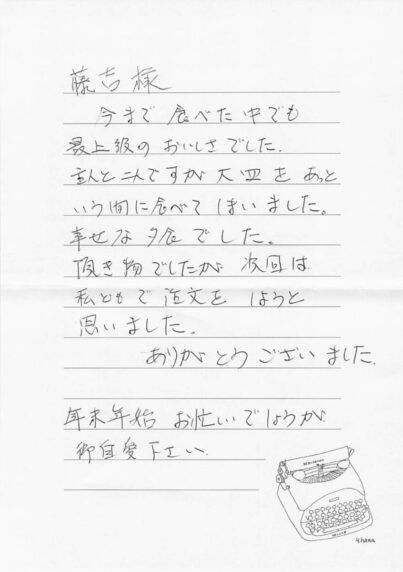 藤吉様
今まで食べた中でも
最上級のおいしさでした.
主人と二人ですが大皿をあっと
いう間に食べてしまいました。
幸せな夕食でした。
頂き物でしたが次回は
私どもで注文をしようと
思いました.
ありがとうございました.
年末年始 お忙しいでしょうが
御自愛下さい.